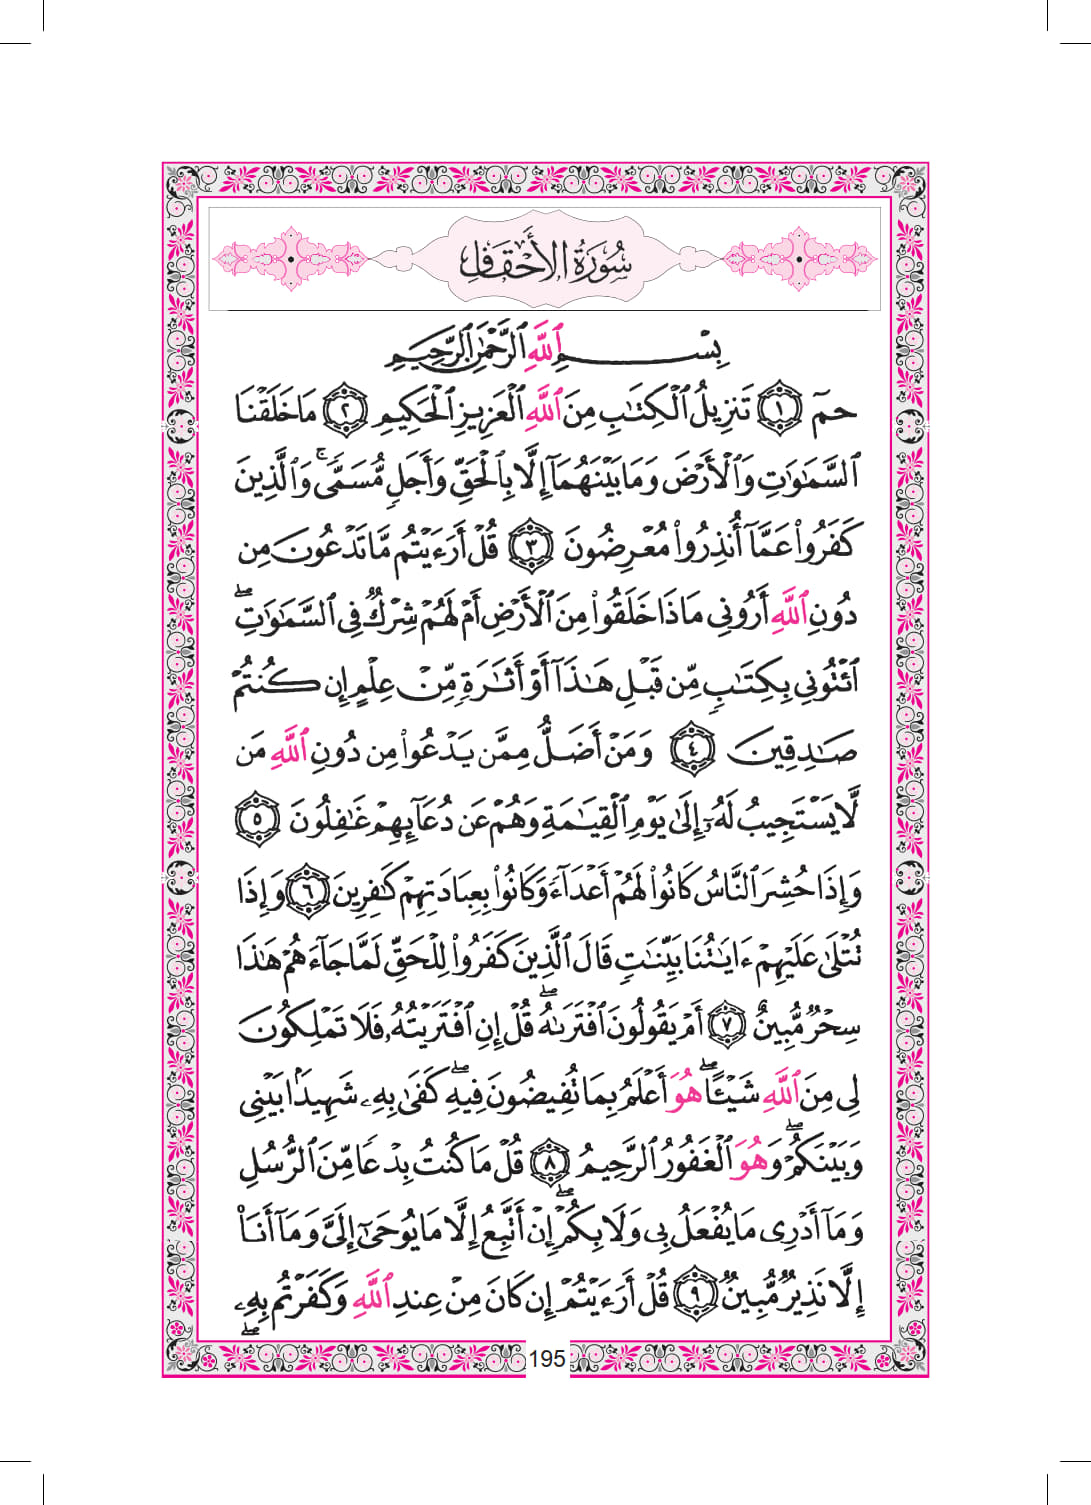 سُورَةُ الأَحْقَافِ
بِسْمِ ٱللَّهِ ٱلرَّحْمَٰنِ ٱلرَّحِيمِ
حمٓ ١ تَنزِيلُ ٱلْكِتَٰبِ مِنَ ٱللَّهِ ٱلْعَزِيزِ ٱلْحَكِيمِ ٢ مَا خَلَقْنَا
ٱلسَّمَٰوَٰتِ وَٱلْأَرْضَ وَمَا بَيْنَهُمَآ إِلَّا بِٱلْحَقِّ وَأَجَلٍ مُّسَمًّى ۚ وَٱلَّذِينَ
كَفَرُوا۟ عَمَّآ أُنذِرُوا۟ مُعْرِضُونَ ٣ قُلْ أَرَءَيْتُم مَّا تَدْعُونَ مِن
دُونِ ٱللَّهِ أَرُونِى مَاذَا خَلَقُوا۟ مِنَ ٱلْأَرْضِ أَمْ لَهُمْ شِرْكٌ فِى ٱلسَّمَٰوَٰتِ ۖ
ٱئْتُونِى بِكِتَٰبٍ مِّن قَبْلِ هَٰذَآ أَوْ أَثَٰرَةٍ مِّنْ عِلْمٍ إِن كُنتُمْ
صَٰدِقِينَ ٤ وَمَنْ أَضَلُّ مِمَّن يَدْعُوا۟ مِن دُونِ ٱللَّهِ مَن
لَّا يَسْتَجِيبُ لَهُۥٓ إِلَىٰ يَوْمِ ٱلْقِيَٰمَةِ وَهُمْ عَن دُعَآئِهِمْ غَٰفِلُونَ ٥
وَإِذَا حُشِرَ ٱلنَّاسُ كَانُوا۟ لَهُمْ أَعْدَآءً وَكَانُوا۟ بِعِبَادَتِهِمْ كَٰفِرِينَ ٦ وَإِذَا
تُتْلَىٰ عَلَيْهِمْ ءَايَٰتُنَا بَيِّنَٰتٍ قَالَ ٱلَّذِينَ كَفَرُوا۟ لِلْحَقِّ لَمَّا جَآءَهُمْ هَٰذَا
سِحْرٌ مُّبِينٌ ٧ أَمْ يَقُولُونَ ٱفْتَرَىٰهُ ۖ قُلْ إِنِ ٱفْتَرَيْتُهُۥ فَلَا تَمْلِكُونَ
لِى مِنَ ٱللَّهِ شَيْـًٔا ۖ هُوَ أَعْلَمُ بِمَا تُفِيضُونَ فِيهِ ۖ كَفَىٰ بِهِۦ شَهِيدًۢا بَيْنِى
وَبَيْنَكُمْ ۖ وَهُوَ ٱلْغَفُورُ ٱلرَّحِيمُ ٨ قُلْ مَا كُنتُ بِدْعًا مِّنَ ٱلرُّسُلِ
وَمَآ أَدْرِى مَا يُفْعَلُ بِى وَلَا بِكُمْ ۖ إِنْ أَتَّبِعُ إِلَّا مَا يُوحَىٰٓ إِلَىَّ وَمَآ أَنَا۠
إِلَّا نَذِيرٌ مُّبِينٌ ٩ قُلْ أَرَءَيْتُمْ إِن كَانَ مِنْ عِندِ ٱللَّهِ وَكَفَرْتُم بِهِۦ ۖ
195